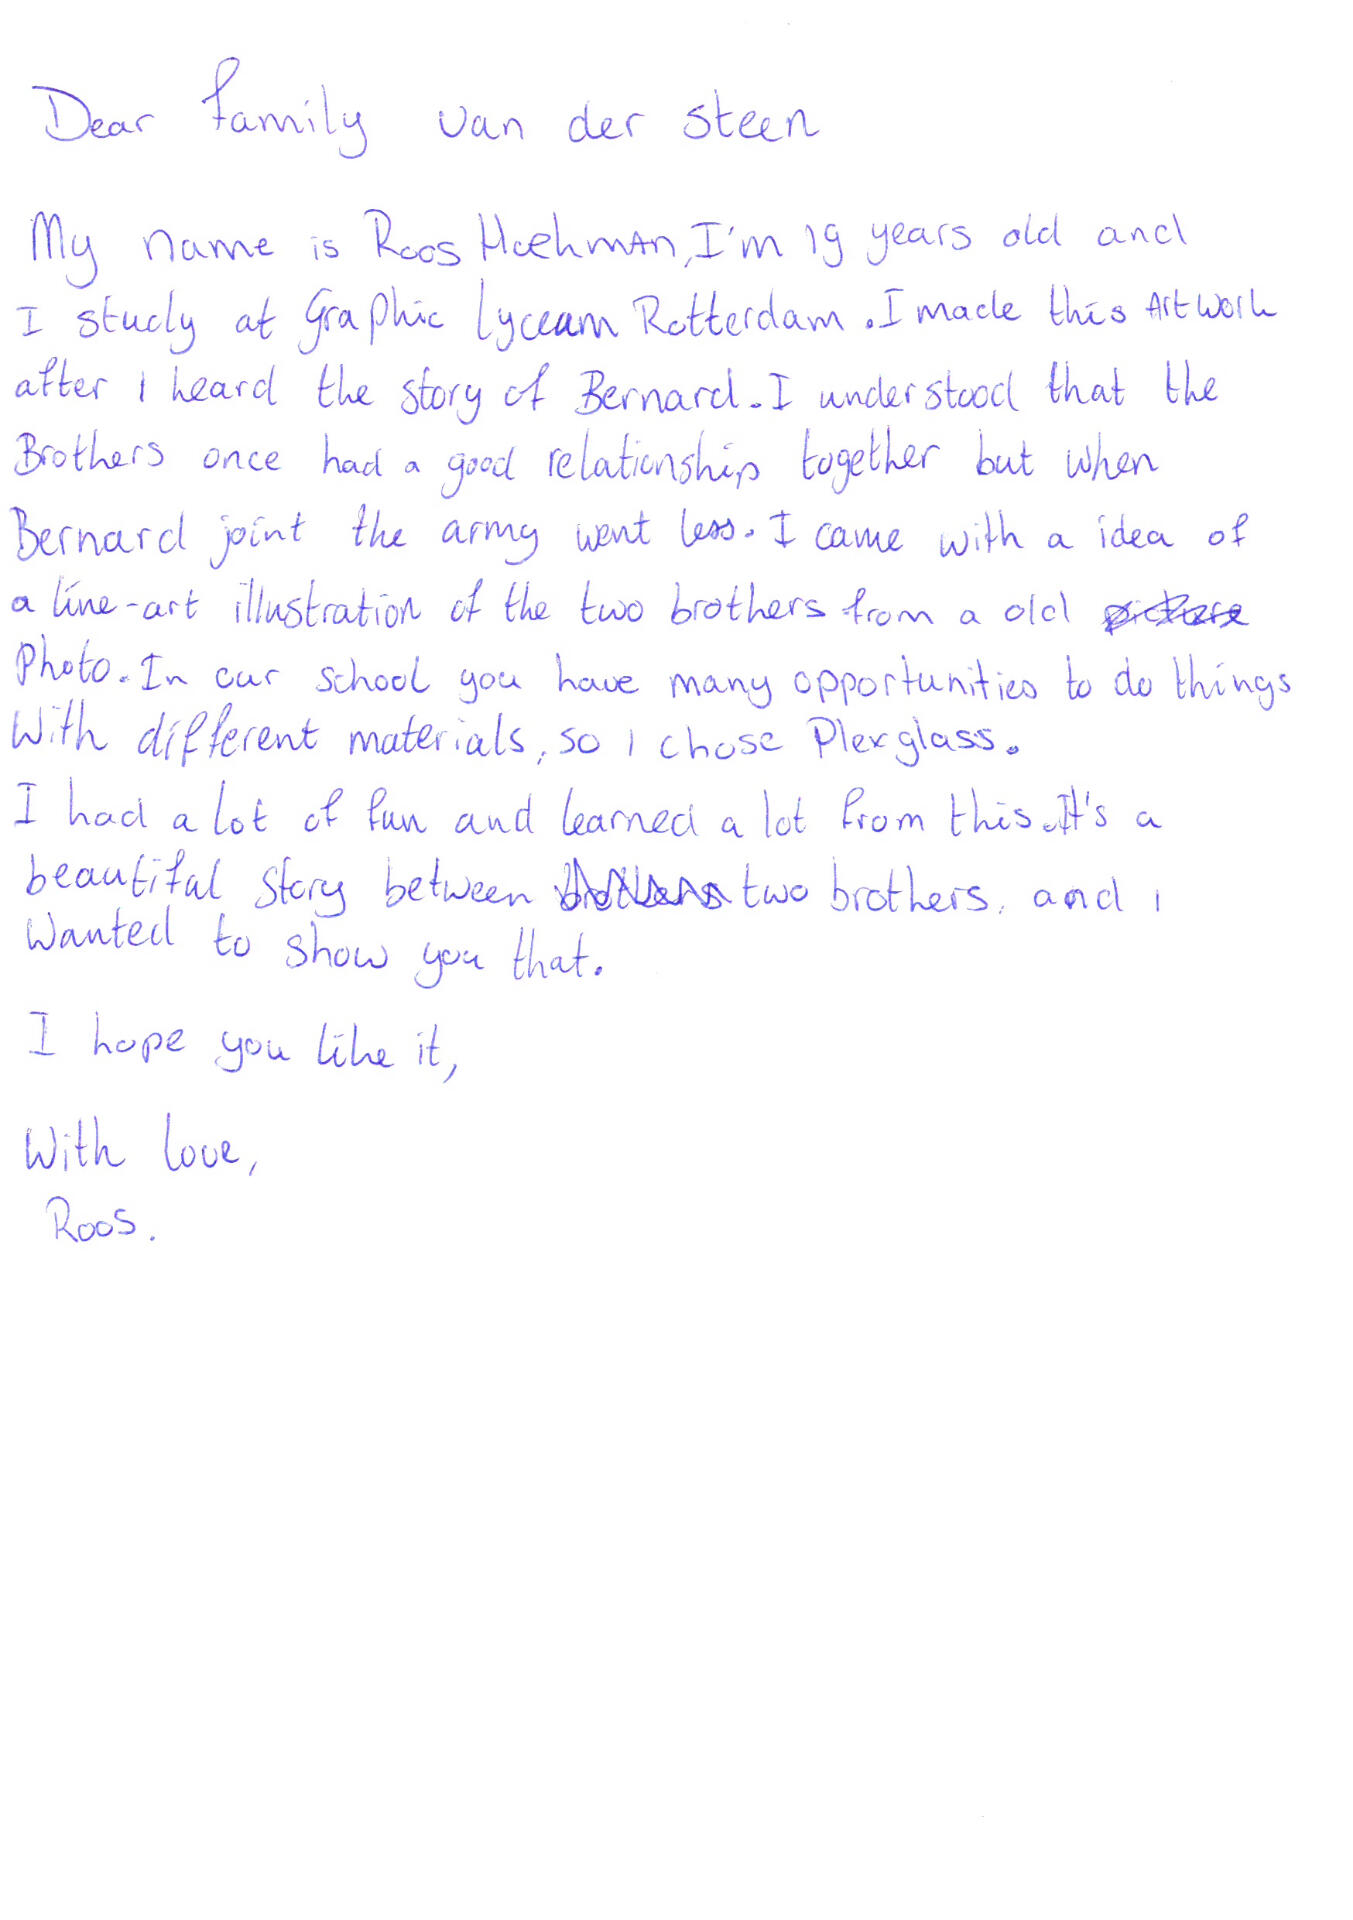 Dear family van der Steen
My name is Roos Hoekman, I'm 19 years old and
I study at Graphic Lyceum Rotterdam. I made this Artwork
after I heard the story of Bernard. I understood that the
Brothers once had a good relationship together but when
Bernard joint the army went less. I came with a idea of
a line-art illustration of the two brothers from a old
Photo. In our school you have many opportunities to do things
With different materials, so I chose Plexglass.
I had a lot of fun and learned a lot from this. It's a
beautiful story between two brothers, and I
Wanted to show you that.
I hope you like it,
With love,
Roos.